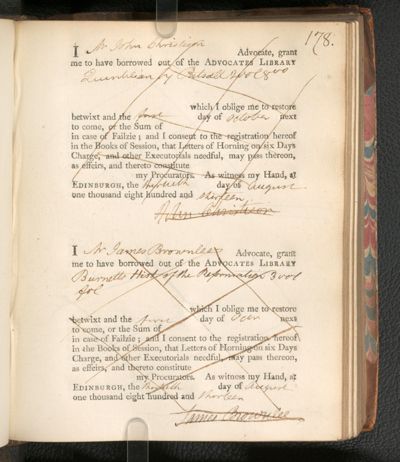 178.
I Mr John Christison Advocate, grant
me to have borrowed out of the ADVOCATES LIBRARY
Quintilian by 2 vol 8vo
which I oblige me to restore
betwixt and the first day of October next
to come, or the Sum of
in case of Failzie; and I consent to the registration hereof
in the Books of Session, that Letters of Horning on six Days
Charge, and other Executorials needful, may pass thereon,
as effeirs, and thereto constitute
my Procurators. As witness my Hand, at
EDINBURGH, the thirtieth day of August
one thousand eight hundred and thirteen
John Christison
I Mr James Brownlee Advocate, grant
me to have borrowed out of the ADVOCATES LIBRARY
Burnetts Hist of the Reformation 3 vol
fol
which I oblige me to restore
betwixt and the first day of next
to come, or the Sum of
in case of Failzie; and I consent to the registration hereof
in the Books of Session, that Letters of Horning on six Days
Charge, and other Executorials needful, may pass thereon,
as effeirs, and thereto constitute
my Procurators. As witness my Hand, at
EDINBURGH, the thirtieth day of August
one thousand eight hundred and thirteen
James Brownlee